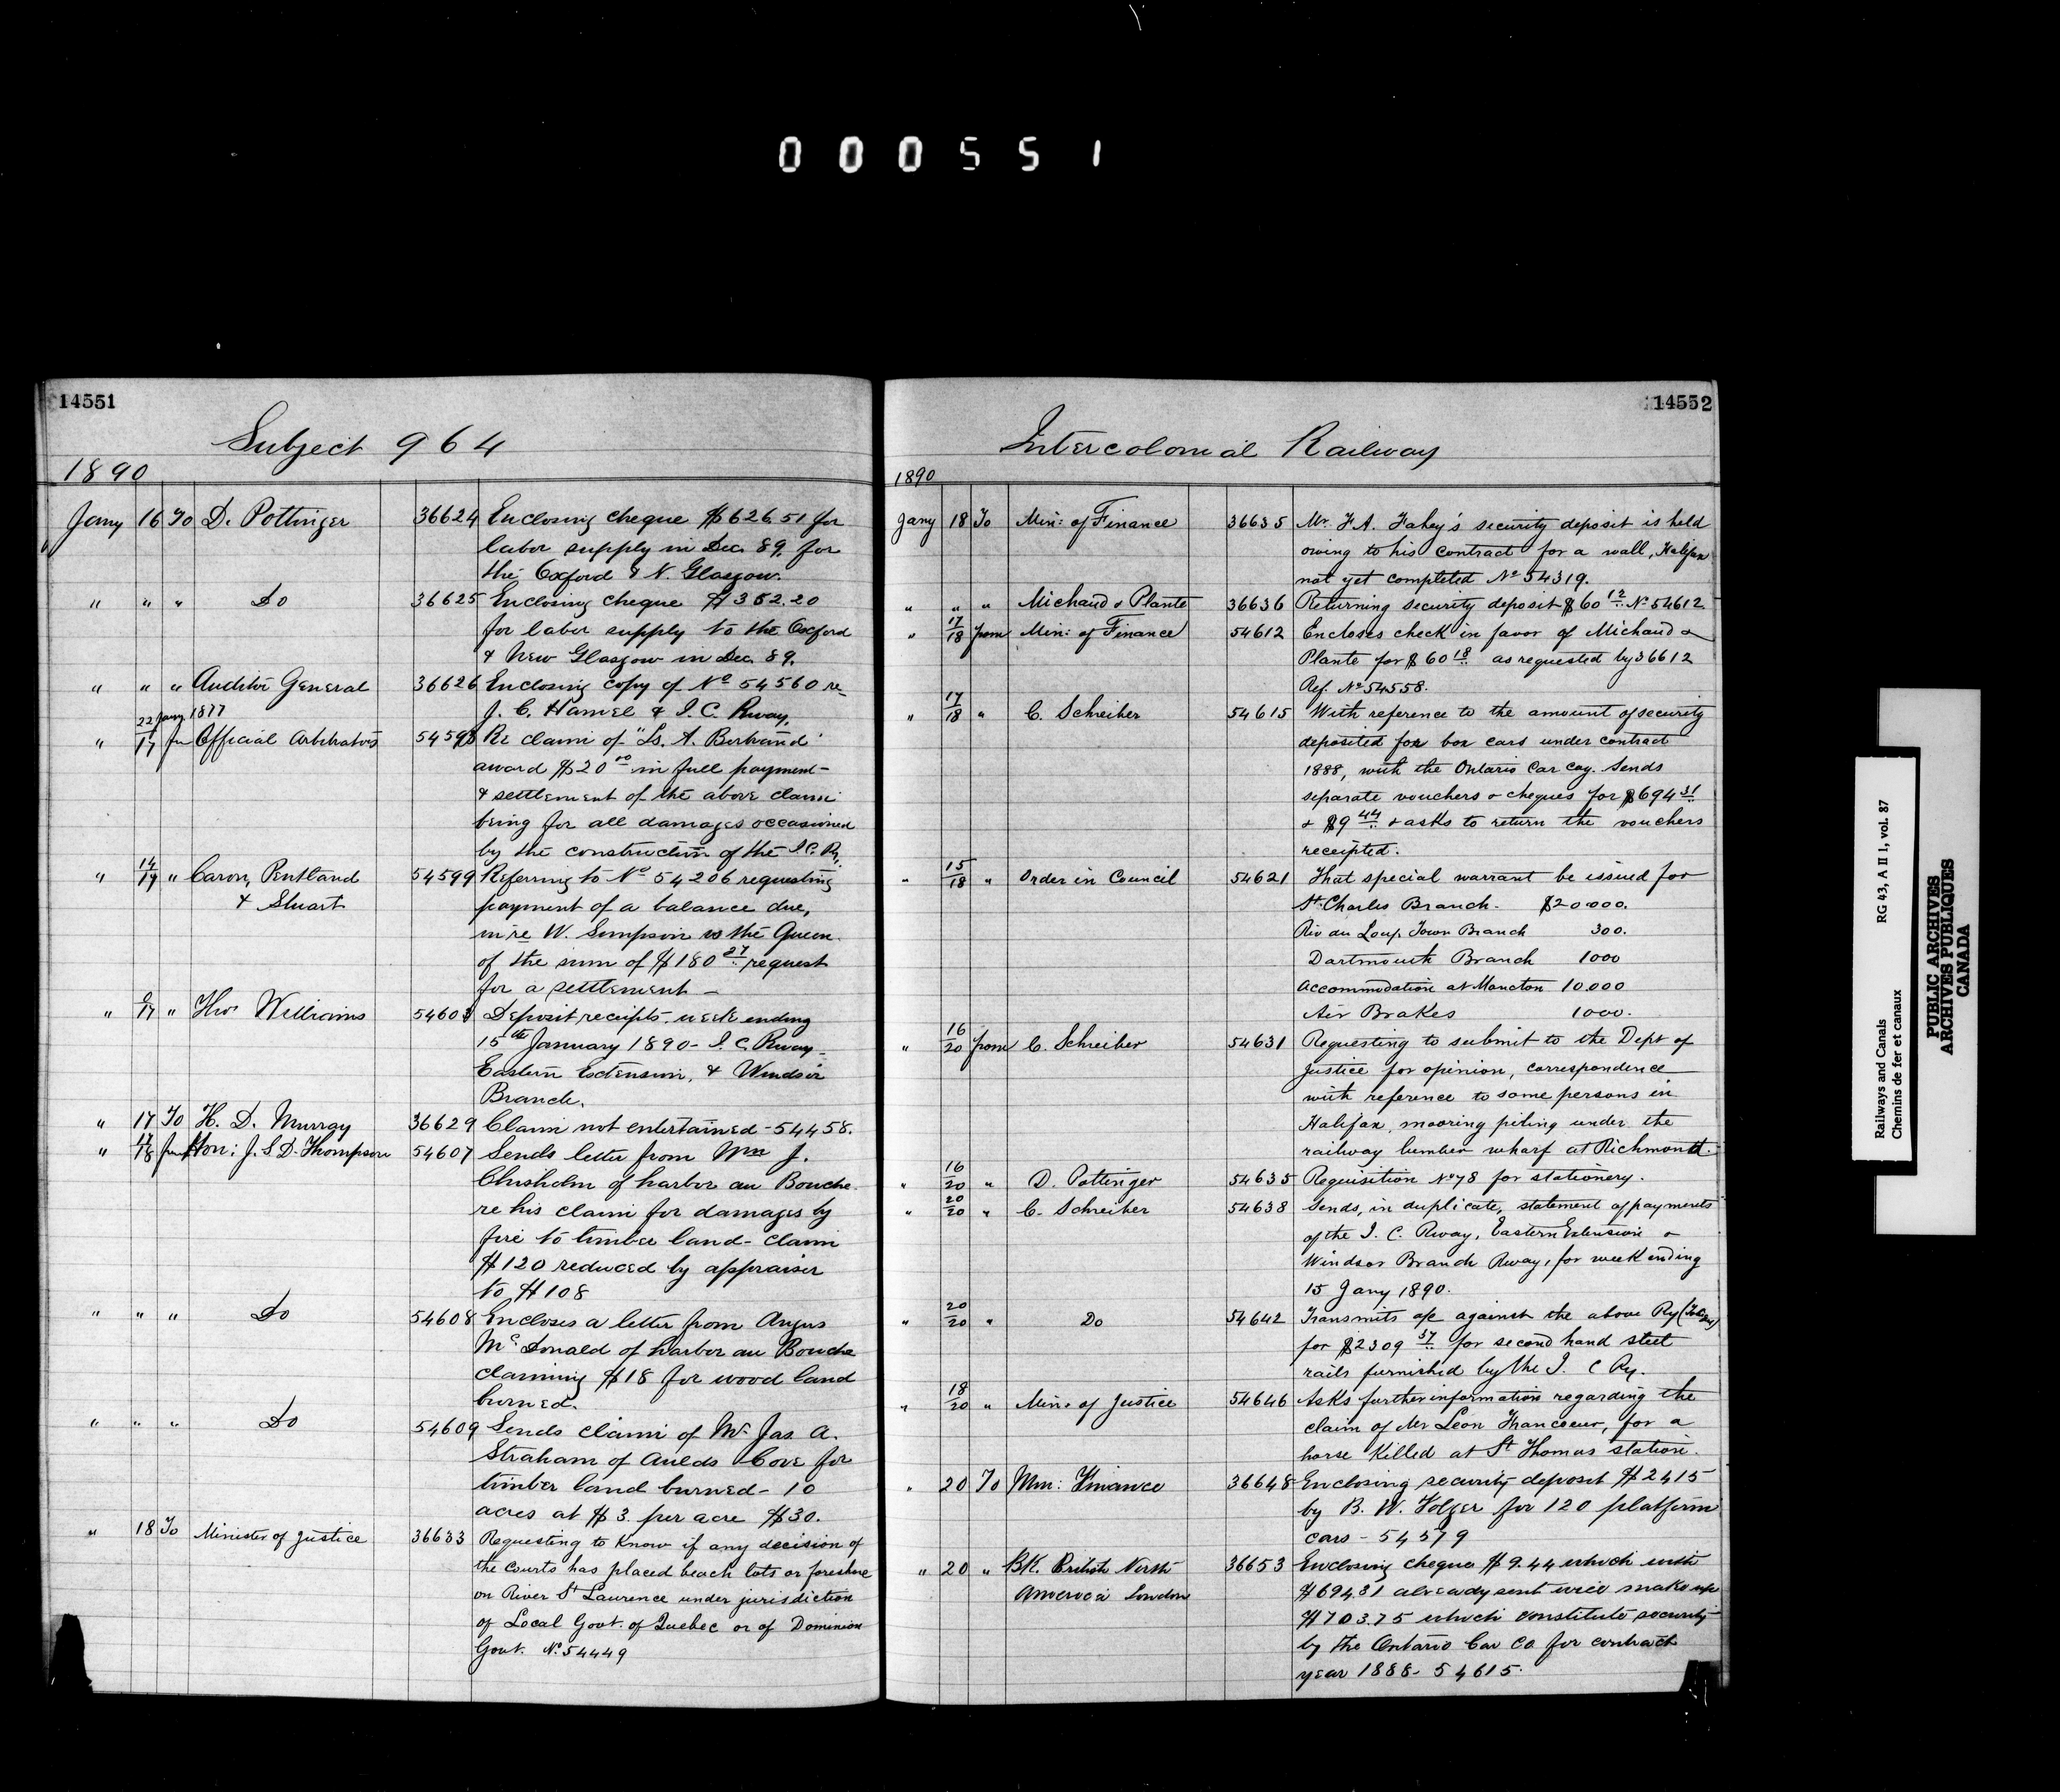 000551
14551
Subject 964
1890
Jany 16 To D. Pottinger 36624 Enclosing cheque $626.51 for
labor supply in Dec. 89. for
the Oxford & N. Glasgow.
" " " Do 36625 Enclosing cheque $352.20
for labor supply to the Oxford
& New Glasgow in Dec. 89.
" " " Auditor General 36626 Enclosing copy of No 54560 re
J. C. Hamel & I. C. Rway.
22 Jany 1877
" /17 fm Official Arbitrators 54598 Re claim of "Ls. A. Bertrand"
award $20 00 in full payment
& settlement of the above claim
being for all damages occasioned
by the construction of the I.C. Ry.
" 14/17 " Caron, Pentland 54599 Referring to No 54206 requesting
& Stuart payment of a balance due,
in re W. Simpson vs the Queen
of the sum of $180 27 request
for a settlement –
" /17 " Thos Williams 54603 Deposit receipts week ending
15th January 1890 - I. C. Rway -
Eastern Extension, & Windsor
Branch.
" 17 To H. D. Murray 36629 Claim not entertained - 54458.
" 17/18 from Hon: J. S. D. Thompson 54607 Sends letter from Wm J.
Chisholm of harbor au Bouche
re his claim for damages by
fire to timber land - claim
$120 reduced by appraiser
to $108
" " " Do 54608 Encloses a letter from Angus
Mc Donald of harbor au Bouche
claiming $18 for wood land
burned.
" " " Do 54609 Sends claim of Mr Jas. A.
Straham of Aulds Cove for
timber land burned - 10
acres at $3. per acre $30.
" 18 To Minister of Justice 36633 Requesting to know if any decision of
the courts has placed beach lots or foreshore
on River St Laurence under jurisdiction
of Local Govt. of Quebec or of Dominion
Govt. No 54449
14552
Intercolonial Railway
1890
Jany 18 To Min: of Finance 36635 Mr. F. A. Fahey's security deposit is held
owing to his contract for a wall, Halifax
not yet completed No 54319.
" " " Michaud & Plante 36636 Returning security deposit $60 12 No 54612
" 17/18 from Min: of Finance 54612 Encloses check in favor of Michaud &
Plante for $60 18 as requested by 36612
Ref. No 54558.
" 17/18 " C. Schreiber 54615 With reference to the amount of security
deposited for box cars under contract
1888, with the Ontario Car Coy. Sends
separate vouchers & cheques for $694 31
& $9 44 & asks to return the vouchers
receipted.
" 15/18 " Order in Council 54621 That special warrant be issued for
St. Charles Branch. $20.000.
Riv du Loup Town Branch 300.
Dartmouth Branch 1000
Accommodation at Moncton 10.000
Air Brakes 1000.
" 16/20 from C. Schreiber 54631 Requesting to submit to the Dept of
Justice for opinion, correspondence
with reference to some persons in
Halifax, mooring piling under the
railway lumber wharf at Richmond.
" 16/20 " D. Pottinger 54635 Requisition No 78 for stationery.
" 20/20 " C. Schreiber 54638 Sends, in duplicate, statement of payments
of the I. C. Rway, Eastern Extension &
Windsor Branch Rway, for week ending
15 Jany 1890.
" 20/20 " Do 54642 Transmits a/c against the above Ry
for $2309 37 for second hand steel
rails furnished by the I. C Ry.
" 18/20 " Min. of Justice 54646 Asks further information regarding the
claim of Mr Leon Francoeur, for a
horse killed at St Thomas station.
" 20 To Min: Finance 36648 Enclosing security deposit $2415
by B. W. Folger for 120 platform
cars - 54579
" 20 " BK. British North 36653 Enclosing cheque $9.44 which with
America London $694.31 already sent will make up
$703.75 which constitute security
by the Ontario Car Co. for contract
year 1888 - 54615.
Railways and Canals RG 43, A II 1, vol. 87
Chemins de fer et canaux
PUBLIC ARCHIVES
ARCHIVES PUBLIQUES
CANADA